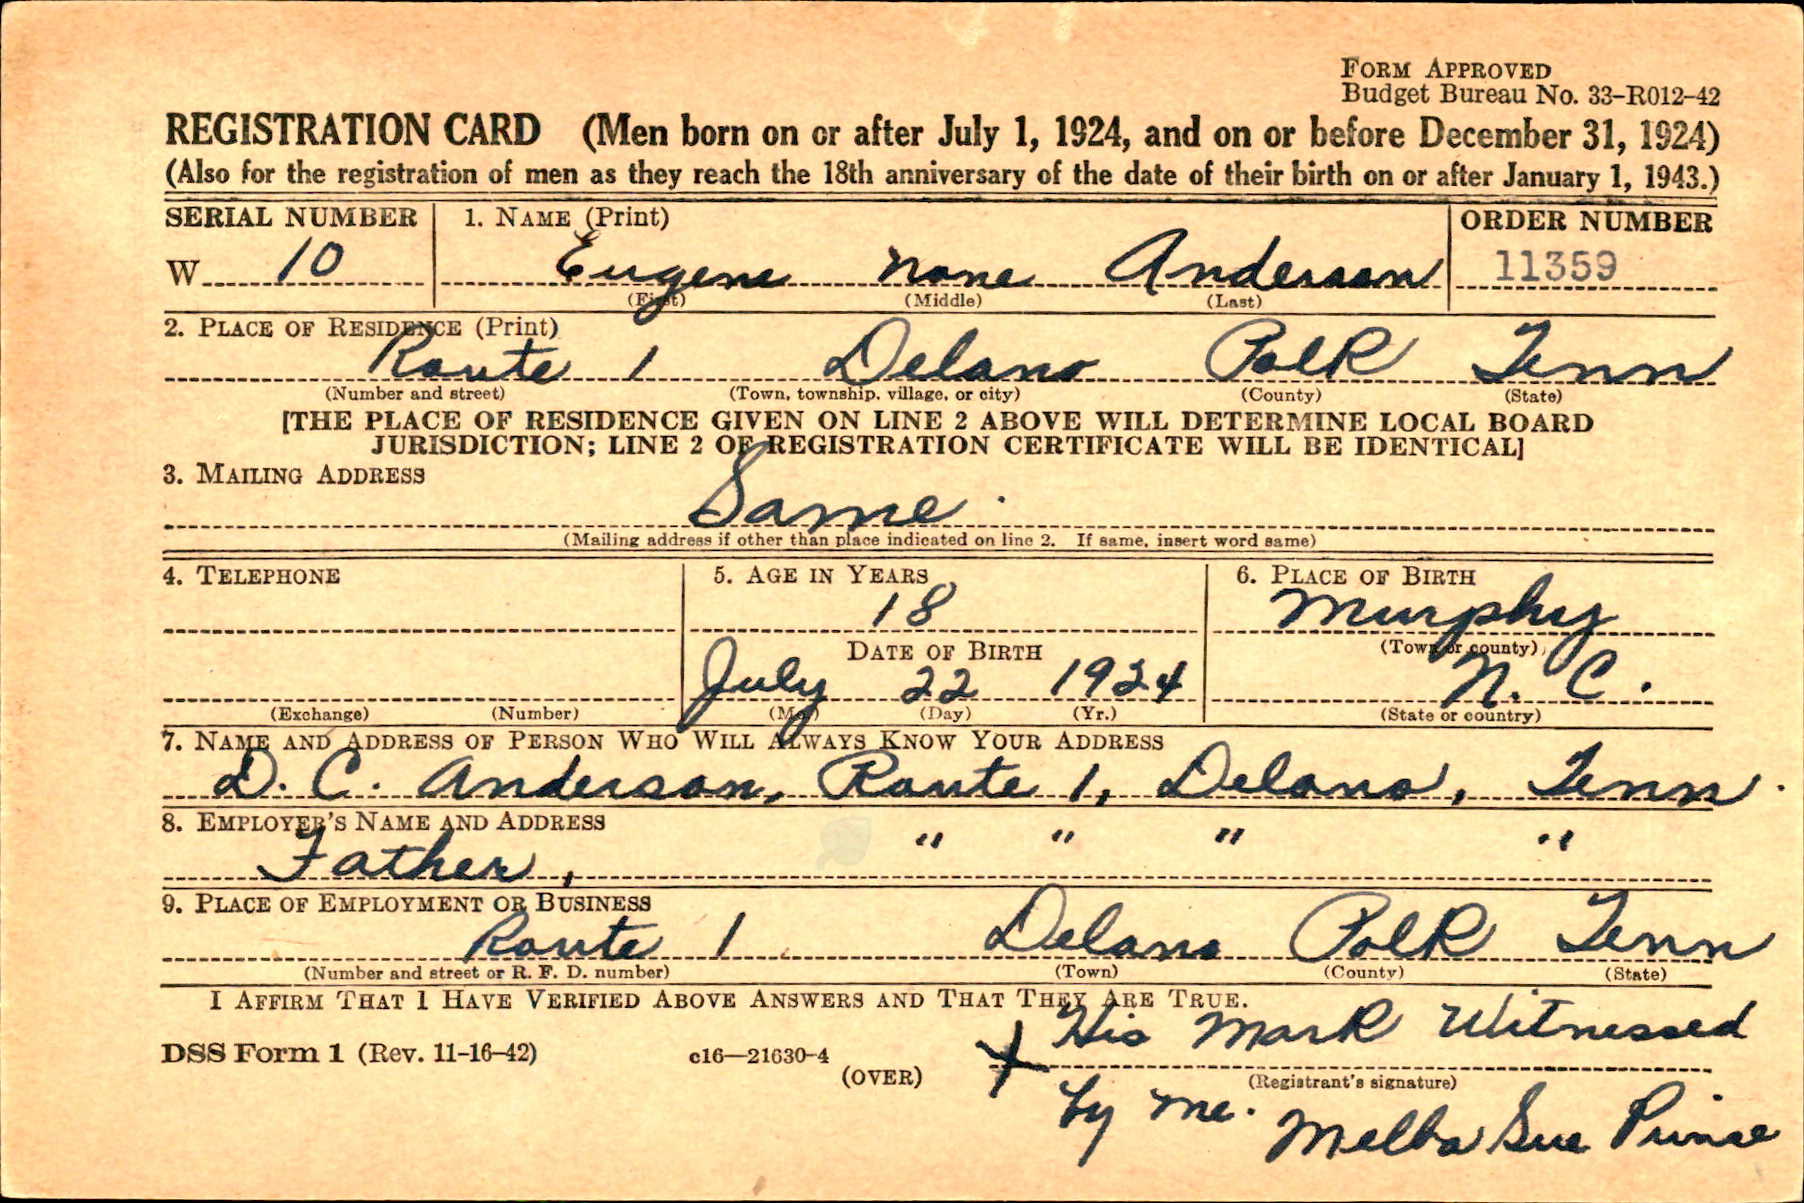 FORM APPROVED
Budget Bureau No. 33-R012-42
REGISTRATION CARD (Men born on or after July 1, 1924, and on or before December 31, 1924)
(Also for the registration of men as they reach the 18th anniversary of the date of their birth on or after January 1, 1943.)
SERIAL NUMBER 1. NAME (Print) ORDER NUMBER
W 10 Eugene none Anderson 11359
(First) (Middle) (Last)
2. PLACE OF RESIDENCE (Print)
Route 1 Delano Polk Tenn
(Number and street) (Town, township, village, or city) (County) (State)
[THE PLACE OF RESIDENCE GIVEN ON LINE 2 ABOVE WILL DETERMINE LOCAL BOARD
JURISDICTION; LINE 2 OF REGISTRATION CERTIFICATE WILL BE IDENTICAL]
3. MAILING ADDRESS
Same
(Mailing address if other than place indicated on line 2. If same, insert word same)
4. TELEPHONE 5. AGE IN YEARS 6. PLACE OF BIRTH
18 Murphy
DATE OF BIRTH (Town or county)
July 22 1924 N. C.
(Exchange) (Number) (Mo.) (Day) (Yr.) (State or country)
7. NAME AND ADDRESS OF PERSON WHO WILL ALWAYS KNOW YOUR ADDRESS
D. C. Anderson, Route 1, Delano, Tenn.
8. EMPLOYER'S NAME AND ADDRESS
Father, " " " "
9. PLACE OF EMPLOYMENT OR BUSINESS
Route 1 Delano Polk Tenn
(Number and street or R. F. D. number) (Town) (County) (State)
I AFFIRM THAT I HAVE VERIFIED ABOVE ANSWERS AND THAT THEY ARE TRUE.
His Mark Witnessed
DSS Form 1 (Rev. 11-16-42) c16—21630-4 (OVER) X
(Registrant's signature)
by me. Melba Sue